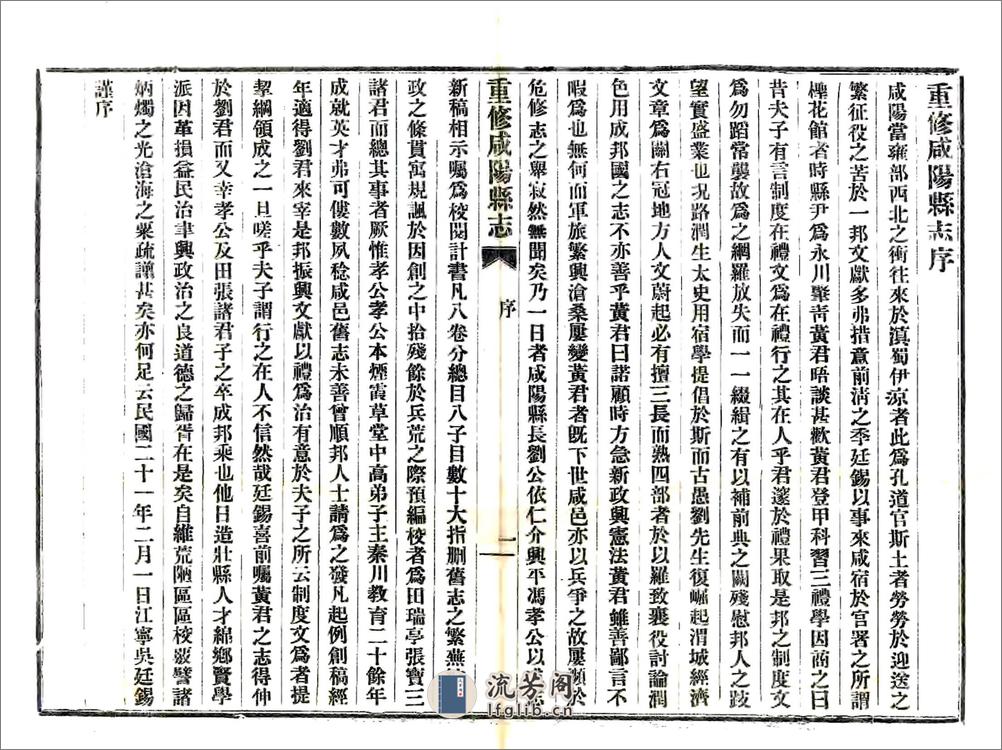 重修咸陽縣志序
咸陽當雍部西北之衝往來於滇蜀伊涼者此爲孔道官斯土者勞勞於迎送之
繁征役之苦於一邦文獻多弗措意前淸之季廷錫以事來咸宿於官署之所謂
花館者時縣尹爲永川肇靑黃君晤談甚歡黃君登甲科習三禮學因商之曰
昔夫子有言制度在禮文爲在禮行之其在人乎君邃於禮果取是邦之制度文
爲勿蹈常襲故爲之網羅放失而一一綴緝之有以補前典之闕殘慰邦人之跂
望實盛業也況路潤生太史用宿學提倡於斯而古愚劉先生復崛起渭城經濟
文章爲關右冠地方人文蔚起必有擅三長而熟四部者於以羅致襄役討論潤
色用成邦國之志不亦善乎黃君曰諾顧時方急新政興憲法黃君雖善鄙言不
暇爲也無何而軍旅繁興滄桑屢變黃君者旣下世咸邑亦以兵爭之故屢瀕於
危修志之舉寂然無聞矣乃一日者咸陽縣長劉公依仁介興平馮孝公以
重修咸陽縣志
序
一
新稿相示囑爲校閱計書凡八卷分總目八子目數十大指刪舊志之繁蕪
政之條貫寓規諷於因創之中拾殘餘於兵荒之際預編校者爲田瑞亭張寶三
諸君而總其事者厥惟孝公孝公本煙霞草堂中高弟子主秦川敎育二十餘年
成就英才弗可僂數夙稔咸邑舊志未善曾順邦人士請爲之發凡起例創稿經
年適得劉君來宰是邦振興文獻以禮爲治有意於夫子之所云制度文爲者提
挈綱領成之一旦嗟乎夫子謂行之在人不信然哉廷錫喜前囑黃君之志得伸
於劉君而又幸孝公及田張諸君子之卒成邦乘也他日造壯縣人才綿鄉賢學
派因革損益民治聿興政治之良道德之歸胥在是矣自維荒陋區區校譬諸
炳燭之光滄海之粟疏謭甚矣亦何足云民國二十一年二月一日江寧吳廷錫
謹序
流芳阁
lfglib.cn